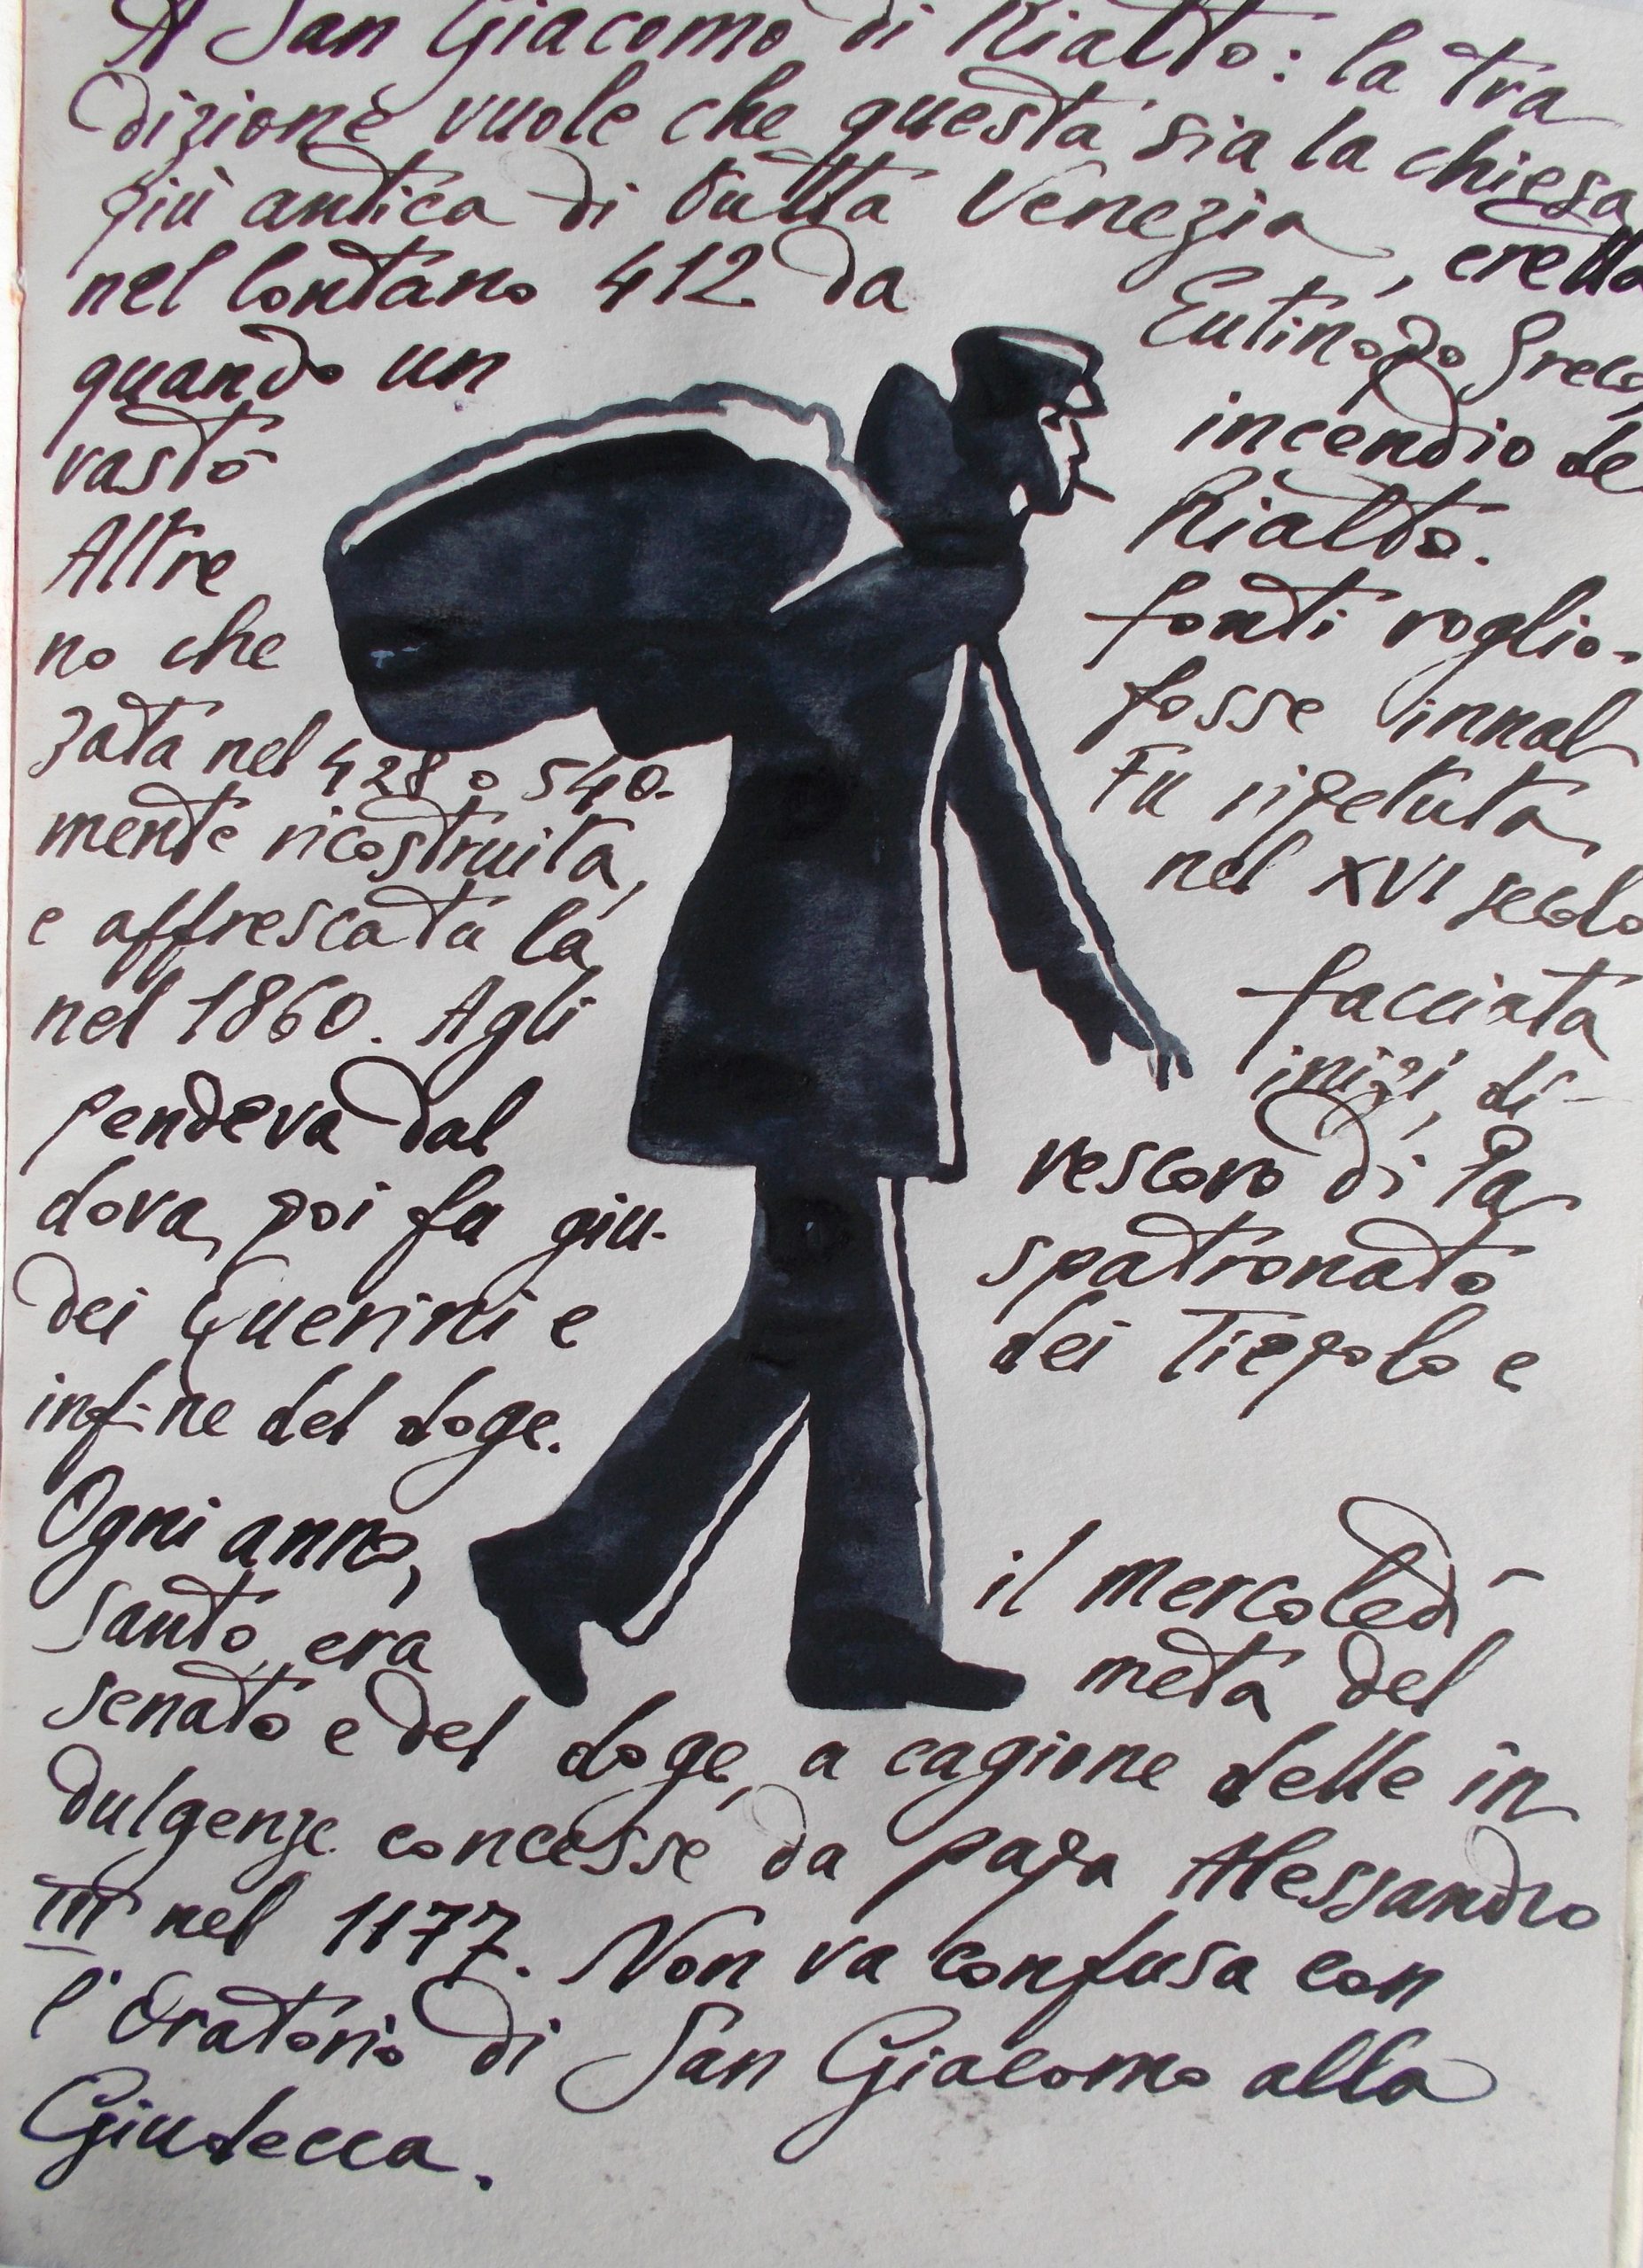 A San Giacomo di Rialto: la tra
dizione vuole che questa sia la chiesa
più antica di tutta Venezia, eretta
nel lontano 412 da Eutinopo Greco,
quando un incendio de
vastò Rialto.
Altre fonti voglio-
no che fosse innal
zata nel 428 o 540. Fu ripetuta
mente ricostruita, nel XVI secolo
e affrescata la facciata
nel 1860. Agli inizi, di-
pendeva dal vescovo di Pa
dova, poi fu giu- spatronato
dei Querini e dei Tiepolo e
infine del doge.
Ogni anno, il mercoledì
santo, era meta del
senato e del doge, a cagione delle in
dulgenze concesse da papa Alessandro
III nel 1177. Non va confusa con
l'Oratorio di San Giacomo alla
Giudecca.